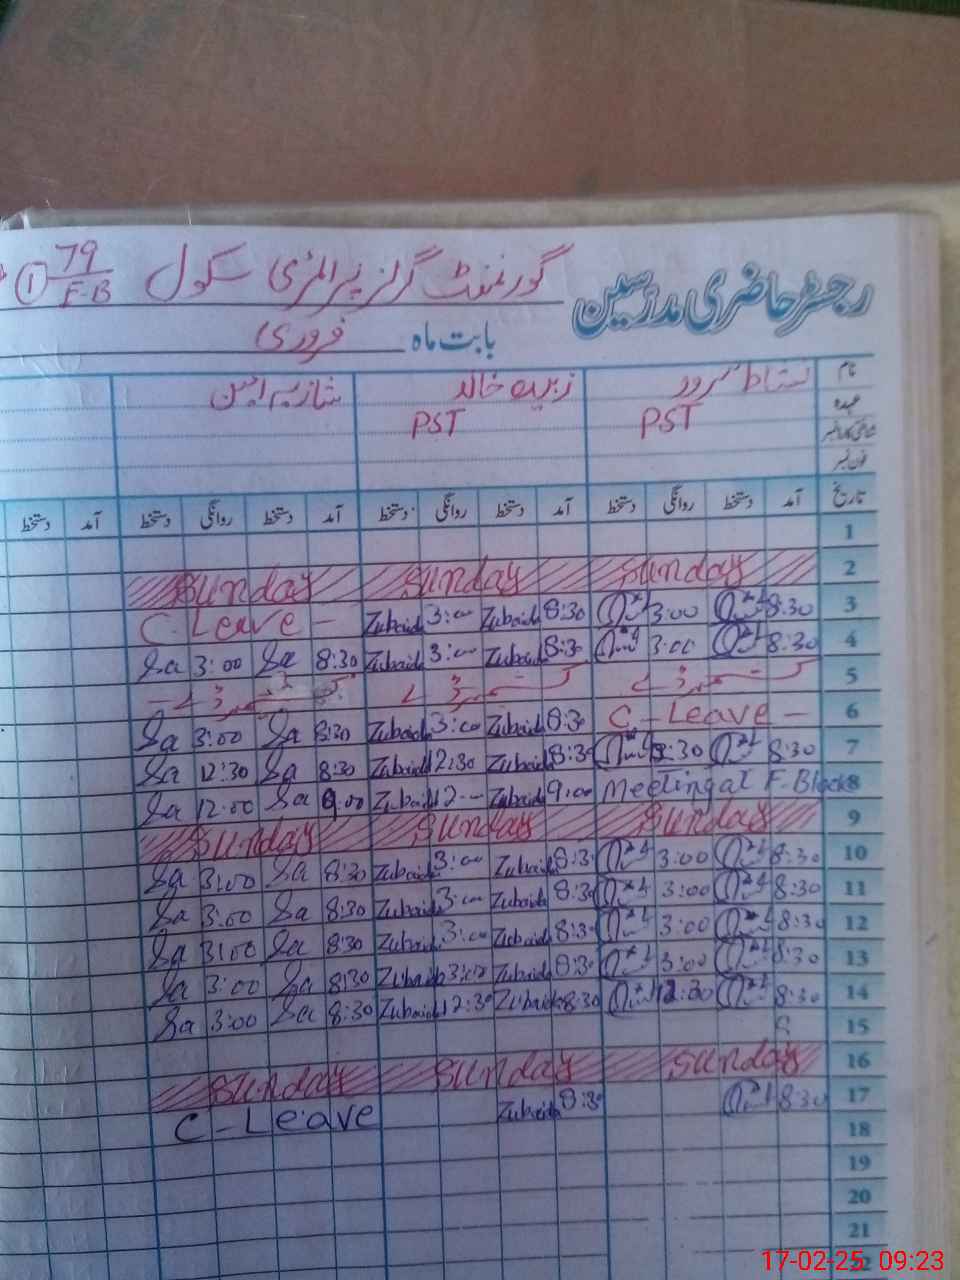 گورنمنٹ گرلز پرائمری سکول 79/F-B ①
رجسٹر حاضری مدرسین
بابت ماہ فروری
نام نشاط سرور زبیدہ خالد شازیہ
عہدہ PST PST
فون نمبر
تاریخ آمد دستخط روانگی دستخط آمد دستخط روانگی دستخط آمد دستخط روانگی دستخط آمد دستخط
1
2 Sunday Sunday Sunday
3 8:30 3:00 8:30 Zubaida 3:00 Zubaida C-Leave -
4 8:30 3:00 8:30 Zubaida 3:00 Zubaida 8:30 Sa 3:00 Sa
5
6 C-Leave - 8:30 Zubaida 3:00 Zubaida 8:30 Sa 3:00 Sa
7 8:30 12:30 8:30 Zubaida 12:30 Zubaida 8:30 Sa 12:30 Sa
8 Meeting at F-Block 9:00 Zubaida 12:00 Zubaida 9:00 Sa 12:00 Sa
9 Sunday Sunday Sunday
10 8:30 3:00 8:30 Zubaida 3:00 Zubaida 8:30 Sa 3:00 Sa
11 8:30 3:00 8:30 Zubaida 3:00 Zubaida 8:30 Sa 3:00 Sa
12 8:30 3:00 8:30 Zubaida 3:00 Zubaida 8:30 Sa 3:00 Sa
13 8:30 3:00 8:30 Zubaida 3:00 Zubaida 8:30 Sa 3:00 Sa
14 8:30 12:30 8:30 Zubaida 12:30 Zubaida 8:30 Sa 3:00 Sa
15 8
16 Sunday Sunday Sunday
17 8:30 8:30 Zubaida C-Leave
18
19
20
21
22
17-02-25 09:23